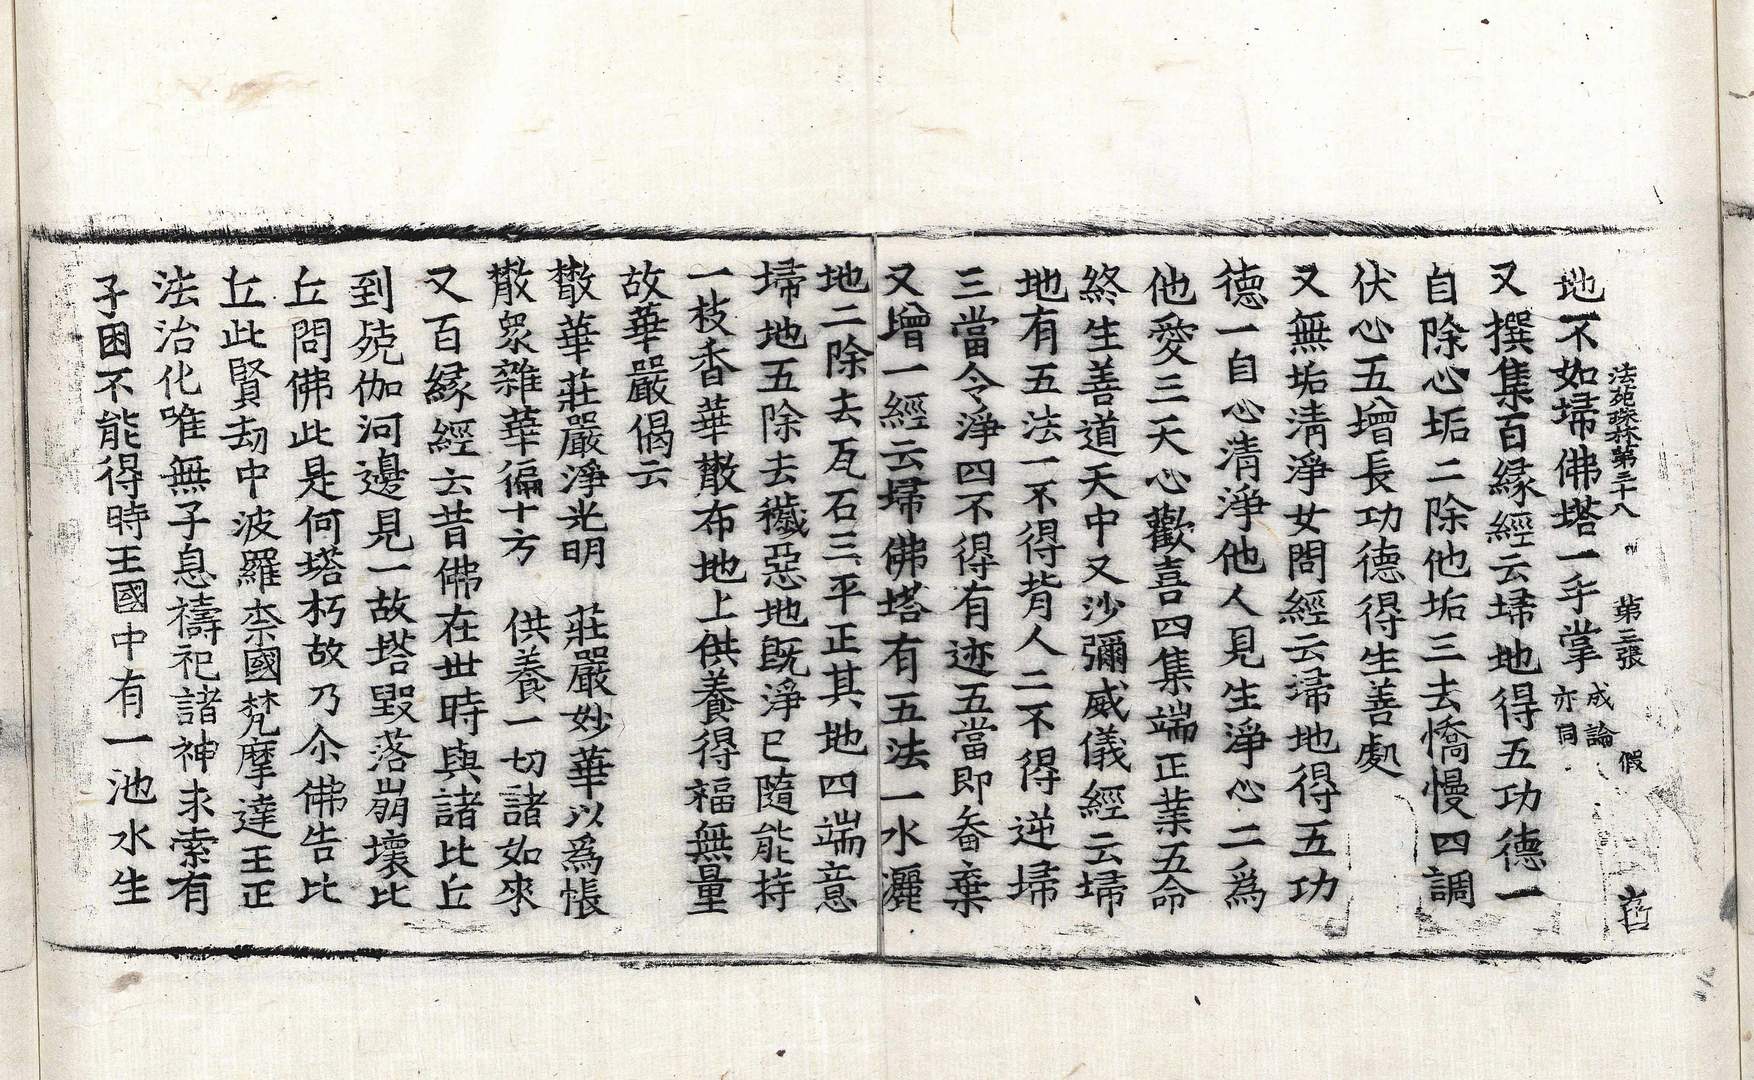 法苑珠林第三十八　第三張　假
地不如埽佛塔一手掌成論亦同
又撰集百緣經云埽地得五功德一
自除心垢二除他垢三去憍慢四調
伏心五增長功德得生善處
又無垢清淨女問經云埽地得五功
德一自心清淨他人見生淨心二爲
他愛三天心歡喜四集端正業五命
終生善道天中又沙彌威儀經云埽
地有五法一不得背人二不得逆埽
三當令淨四不得有迹五當即畚棄
又增一經云埽佛塔有五法一水灑
地二除去瓦石三平正其地四端意
埽地五除去穢惡地既淨已隨能持
一枝香華散布地上供養得福無量
故華嚴偈云
散華莊嚴淨光明　莊嚴妙華以爲帳
散衆雜華徧十方　供養一切諸如來
又百緣經云昔佛在世時與諸比丘
到殑伽河邊見一故塔毀落崩壞比
丘問佛此是何塔朽故乃尒佛告比
丘此賢劫中波羅柰國梵摩達王正
法治化唯無子息禱祀諸神求索有
子困不能得時王國中有一池水生